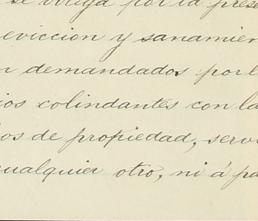 se obliga por la prese
eviccion y sanamien
n demandados por l
ios colindantes con la
os de propiedad, serv
cualquier otro, ni á pa